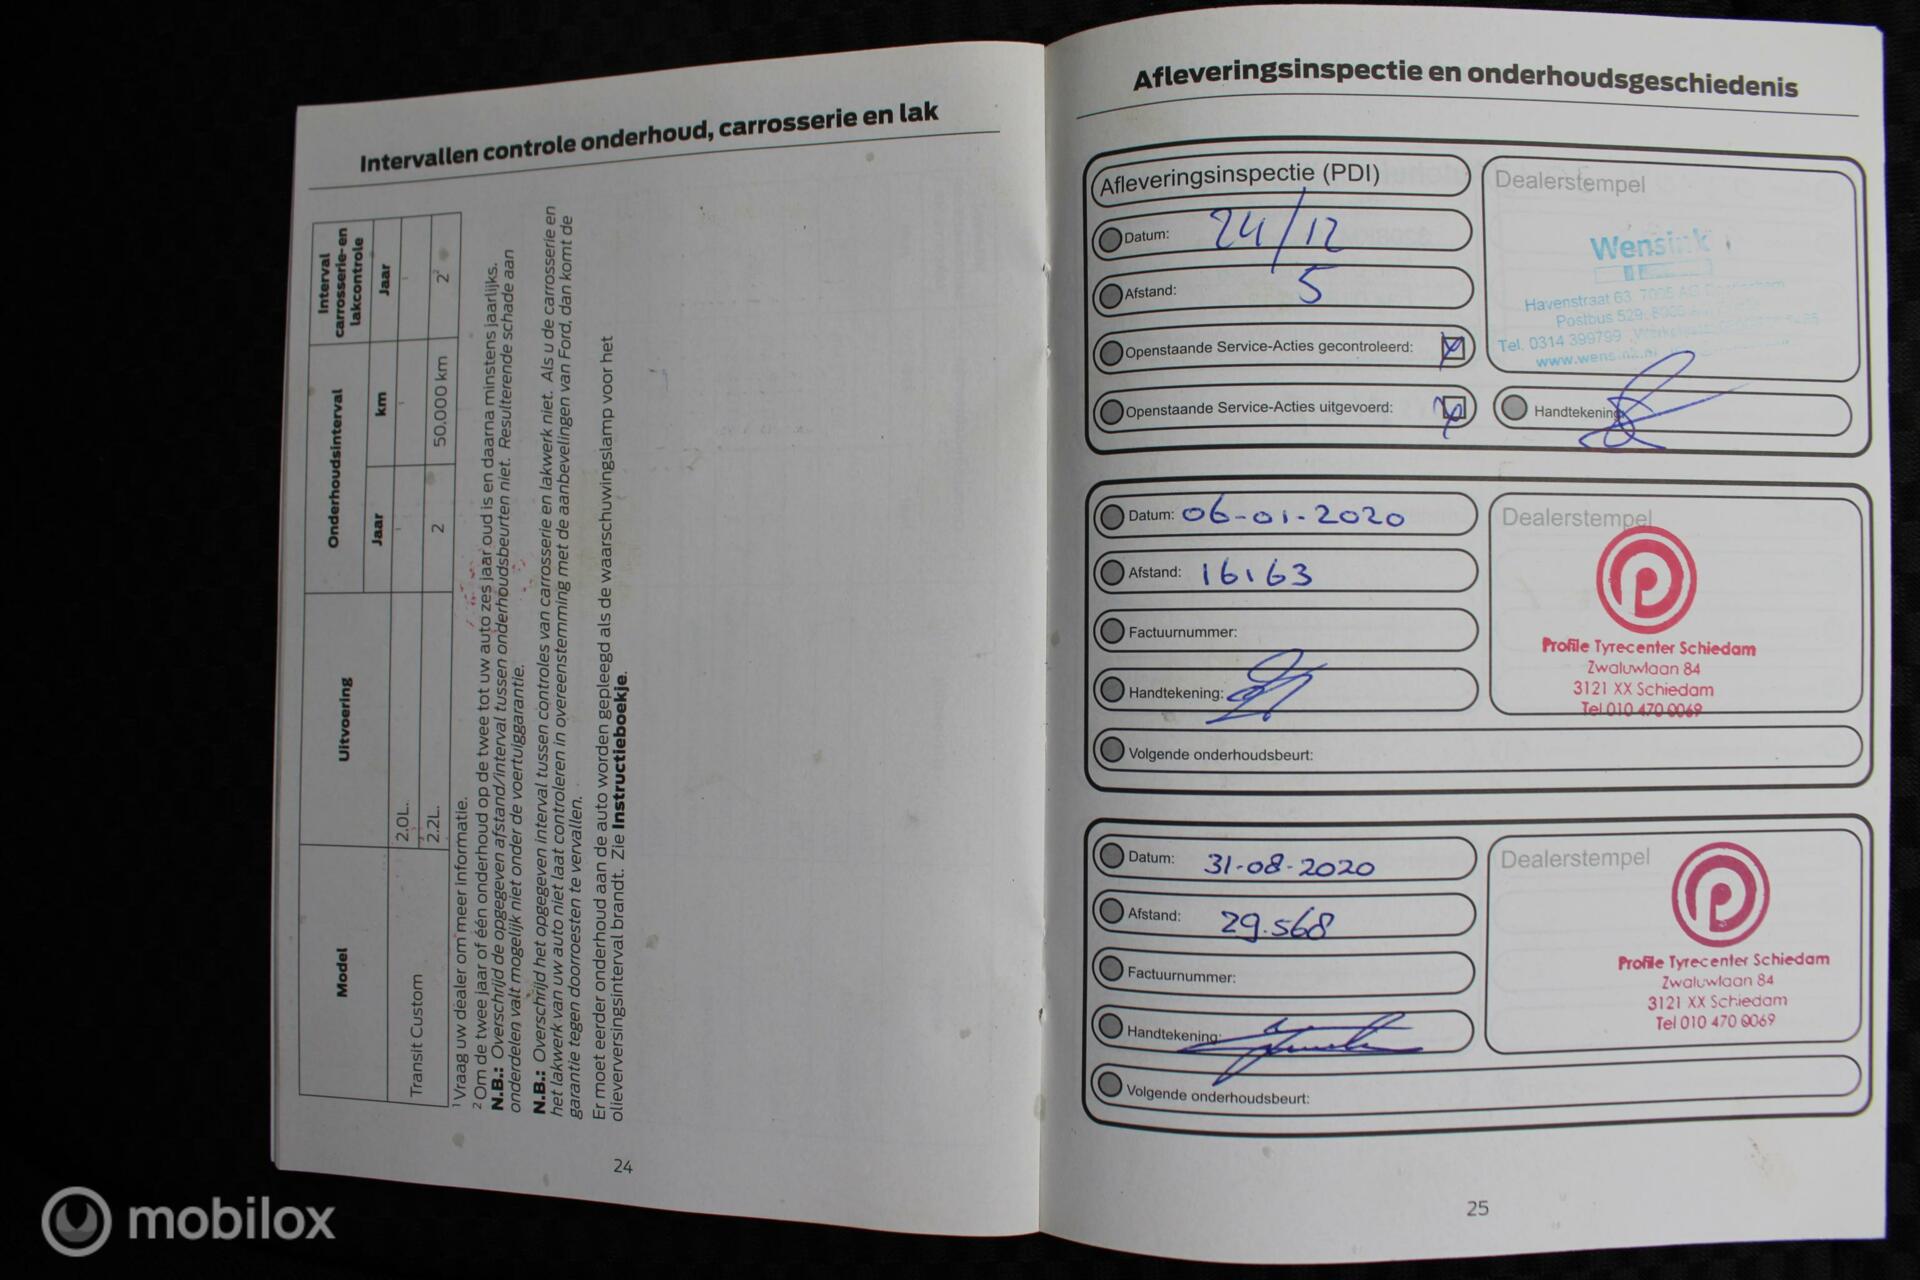 Intervallen controle onderhoud, carrosserie en lak
Model
Uitvoering
Onderhoudsinterval
Interval carrosserie-en lakcontrole
Jaar
km
Jaar
Transit Custom
2.0L.
2.2L.
2
50.000 km
2²
¹ Vraag uw dealer om meer informatie.
² Om de twee jaar of één onderhoud op de twee tot uw auto zes jaar oud is en daarna minstens jaarlijks.
N.B.: Overschrijd de opgegeven afstand/interval tussen onderhoudsbeurten niet. Resulterende schade aan
onderdelen valt mogelijk niet onder de voertuiggarantie.
N.B.: Overschrijd het opgegeven interval tussen controles van carrosserie en lakwerk niet. Als u de carrosserie en
het lakwerk van uw auto niet laat controleren in overeenstemming met de aanbevelingen van Ford, dan komt de
garantie tegen doorroesten te vervallen.
Er moet eerder onderhoud aan de auto worden gepleegd als de waarschuwingslamp voor het
olieverversingsinterval brandt. Zie Instructieboekje.
24
Afleveringsinspectie en onderhoudsgeschiedenis
Afleveringsinspectie (PDI)
Datum: 24/12
Afstand: 5
Openstaande Service-Acties gecontroleerd:
Openstaande Service-Acties uitgevoerd:
Dealerstempel
Wensink
Havenstraat 63, 7005 AG
Postbus 529,
Tel. 0314 399799
www.wensink.nl
Handtekening
Datum: 06-01-2020
Afstand: 16163
Factuurnummer:
Handtekening:
Volgende onderhoudsbeurt:
Dealerstempel
Profile Tyrecenter Schiedam
Zwaluwlaan 84
3121 XX Schiedam
Tel 010 470 0069
Datum: 31-08-2020
Afstand: 29.568
Factuurnummer:
Handtekening:
Volgende onderhoudsbeurt:
Dealerstempel
Profile Tyrecenter Schiedam
Zwaluwlaan 84
3121 XX Schiedam
Tel 010 470 0069
25
mobilox